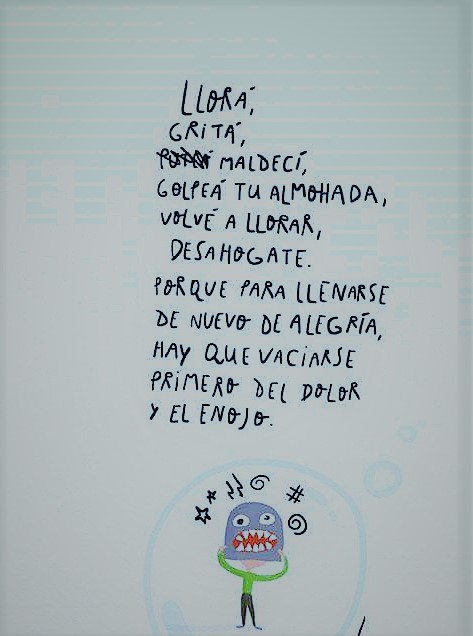 LLORÁ,
GRITÁ,
MALDECÍ,
GOLPEÁ TU ALMOHADA,
VOLVÉ A LLORAR,
DESAHOGATE.
PORQUE PARA LLENARSE
DE NUEVO DE ALEGRÍA,
HAY QUE VACIARSE
PRIMERO DEL DOLOR
Y EL ENOJO.